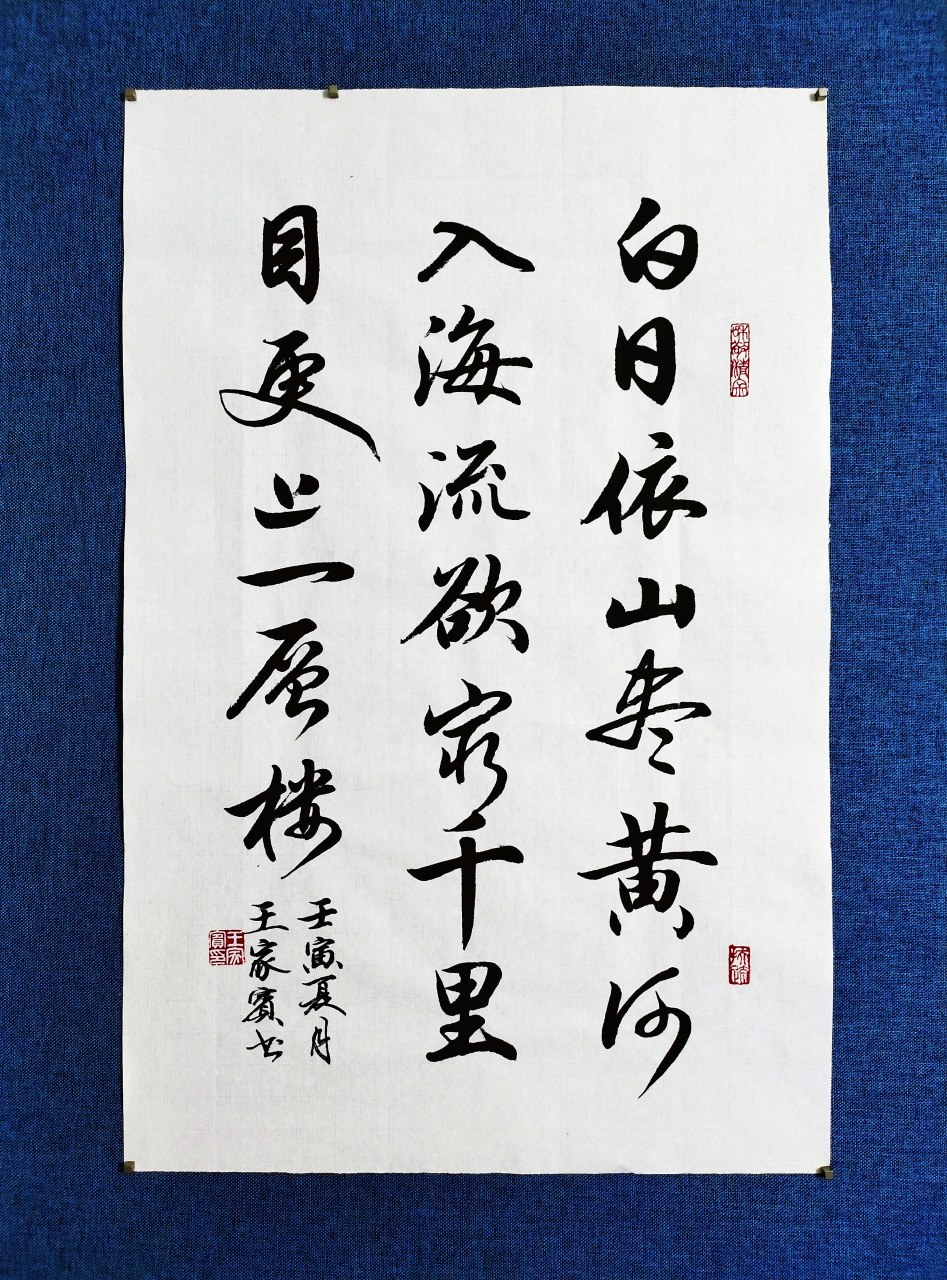 白日依山尽黄河
入海流欲穷千里
目更上一层楼
壬寅夏月
王家宾书